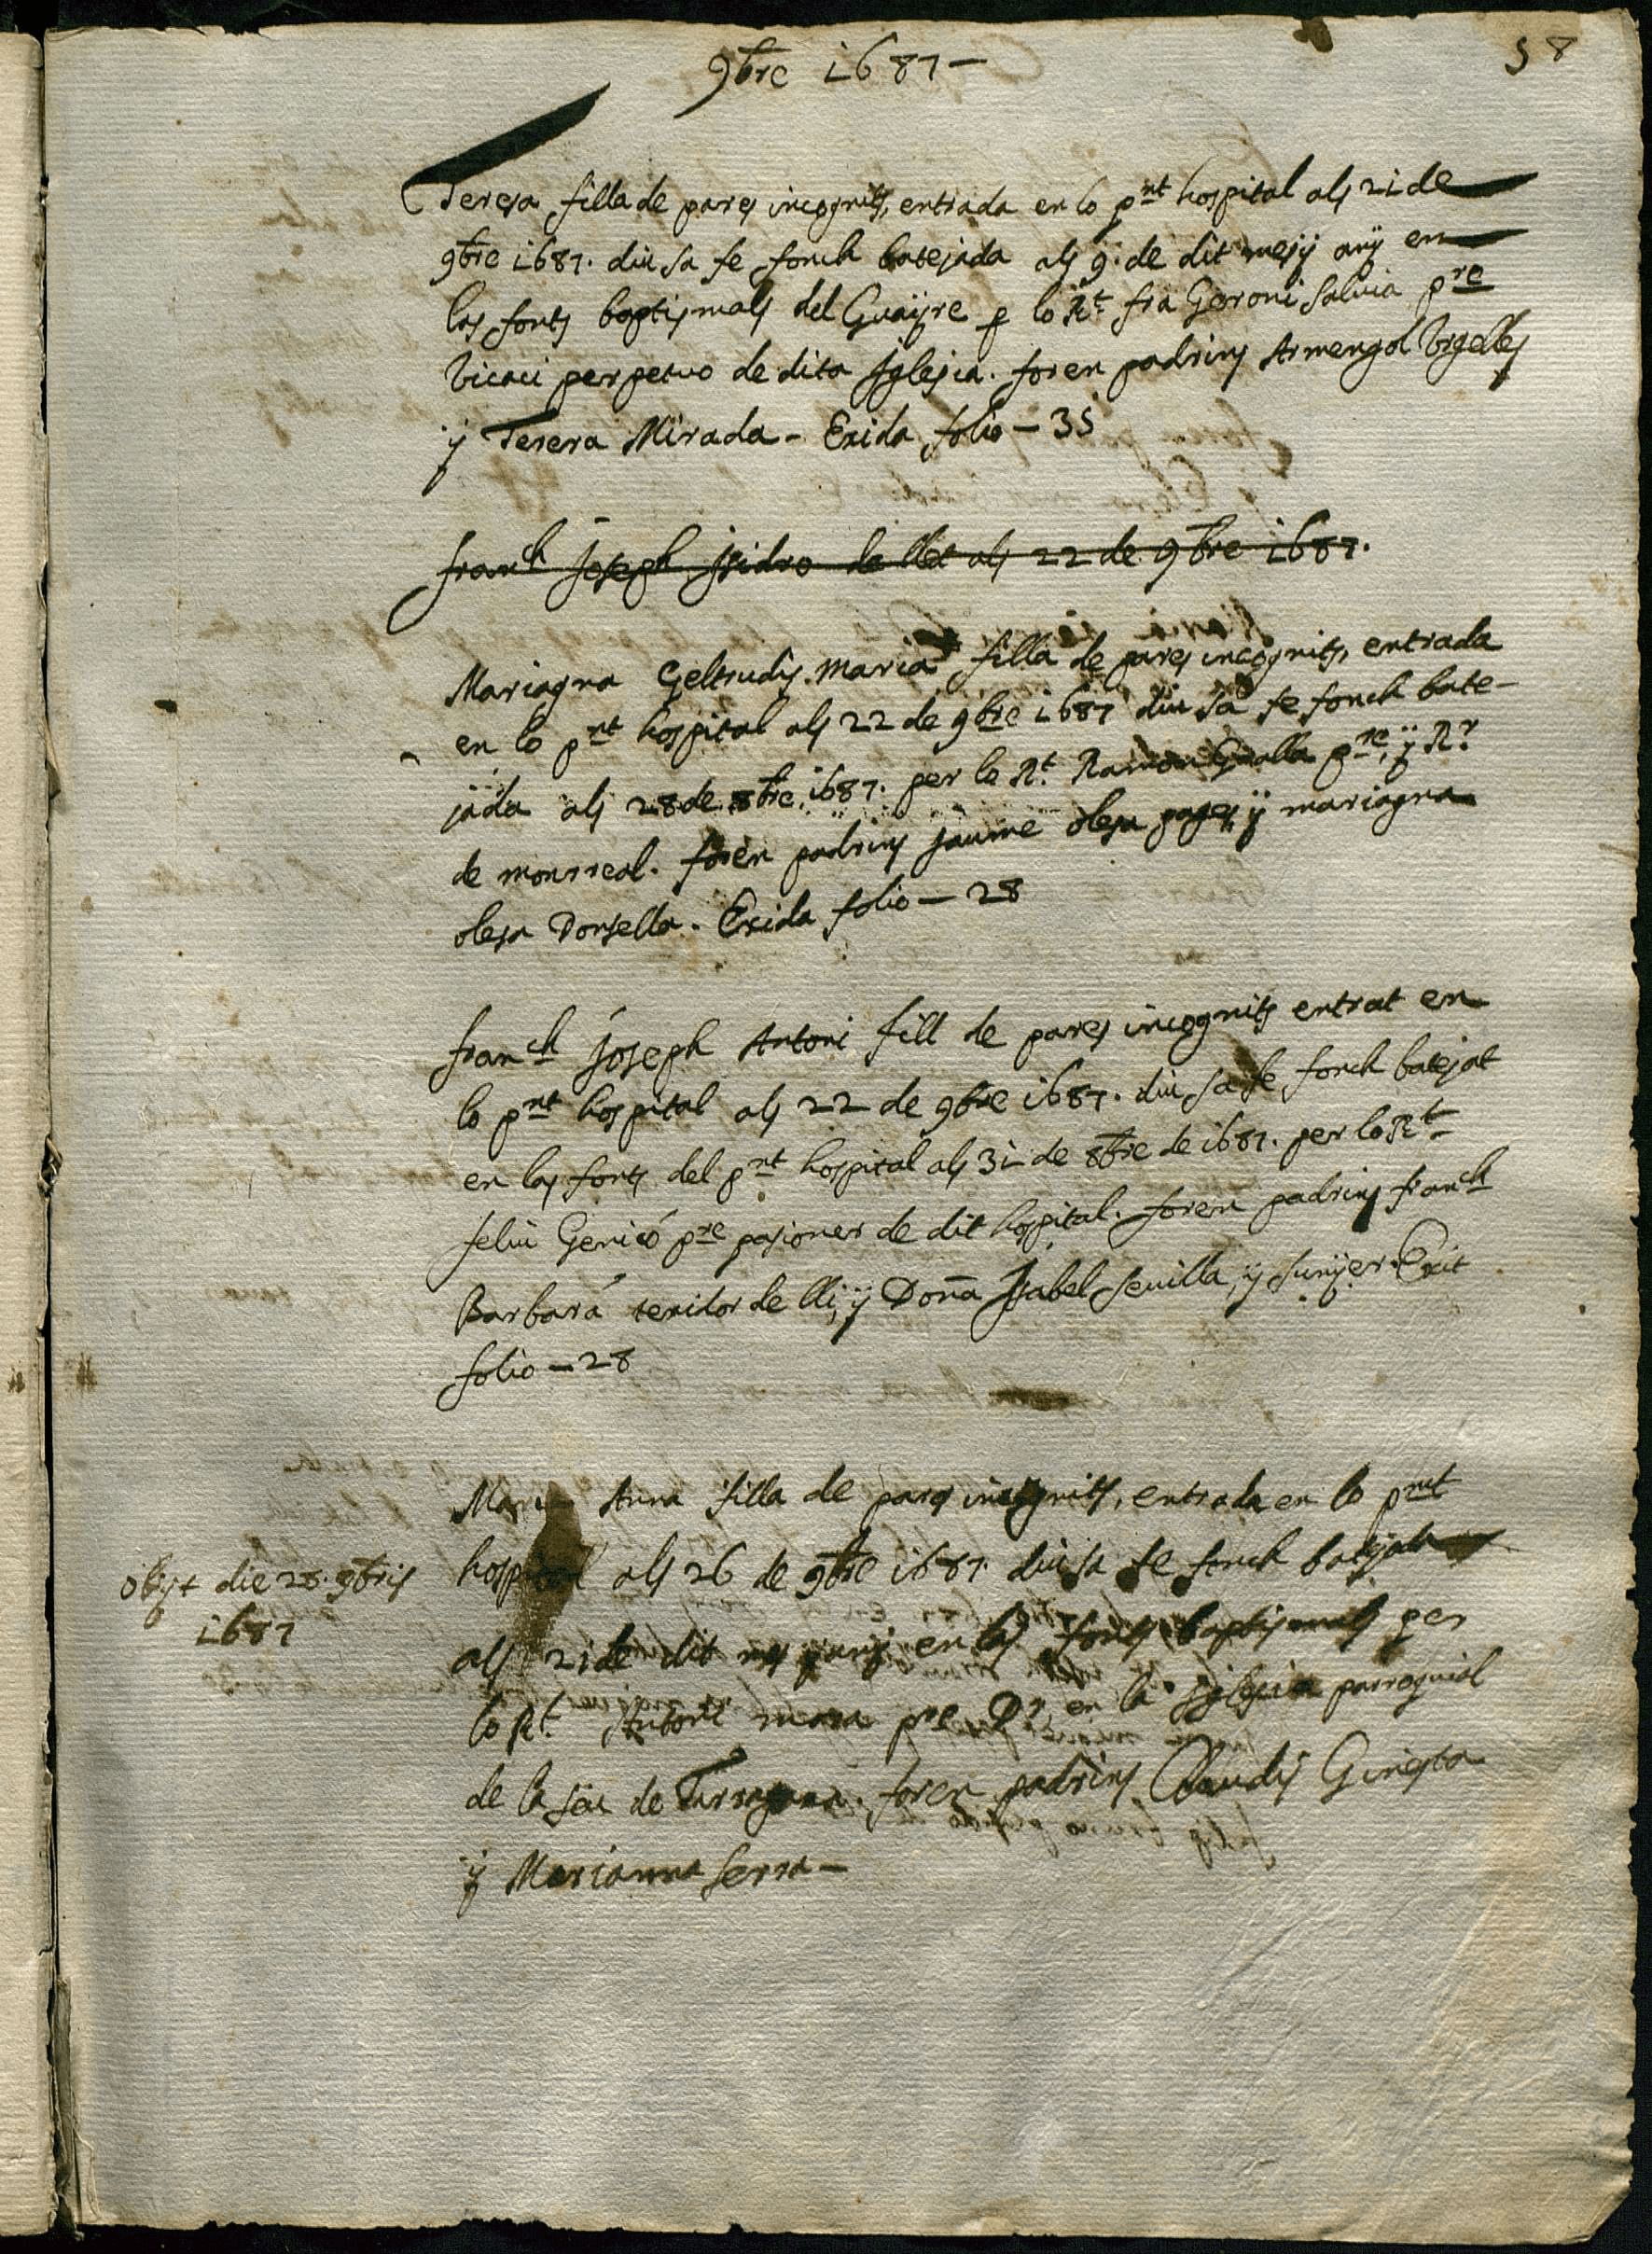 9bre 1687 —
58
Teresa filla de pares incognits, entrada en lo pnt hospital als 21 de
9bre 1687. diu sa fe fonch batejada als 9. de dit mes y añy en
las fonts baptismals del Guayre p lo Rt fra Geroni salvia pre
vicari perpetuo de dita Iglesia. foren padrins Armengol Vrgelles
y Teresa Mirada - Exida folio — 35
franch Joseph Isidro de llet als 22 de 9bre 1687.
Mariagna Geltrudis Maria filla de pares incognits, entrada
en lo pnt hospital als 22 de 9bre 1687 diu sa fe fonch bate-
jada als 28 de 8bre 1687. per lo Rt. Ramon pre, y Rr
de monrreal. foren padrins Jaume olesa pages, y mariagna
olesa Donsella. Exida folio — 28
franch Joseph Antoni fill de pares incognits entrat en
lo pnt hospital als 22 de 9bre 1687. diu sa fe fonch batejat
en las fonts del pnt hospital als 31 de 8bre de 1687. per lo Rt
feliu Genicó pre pasioner de dit hospital. foren padrins franch
Barbará texidor de lli, y Doña Isabel sevilla, y sunyer. Exit
folio — 28
Maria Anna filla de pares incognits, entrada en lo pnt
hospital als 26 de 9bre 1687. diu sa fe fonch batejada
obijt die 28. 9bris
1687
als 21 de dit mes y any en las fonts baptismals per
lo Rt. Antoni masa pre en la Iglesia parroquial
de la seu de Tarragona. foren padrins Claudi Ginesta
y Marianna serra —